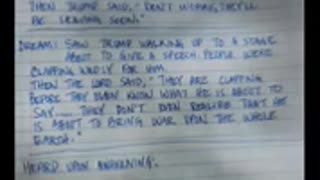 THEN TRUMP SAID, "DON'T WORRY, THEY'LL
BE LEAVING SOON."
DREAM: I SAW TRUMP WALKING UP TO A STAGE
ABOUT TO GIVE A SPEECH. PEOPLE WERE
CLAPPING WILDLY FOR HIM.
THEN THE LORD SAID, "THEY ARE CLAPPING
BEFORE THEY EVEN KNOW WHAT HE IS ABOUT TO
SAY.... THEY DON'T EVEN REALIZE THAT HE
IS ABOUT TO BRING WAR UPON THE WHOLE
EARTH."
HEARD UPON AWAKENING: